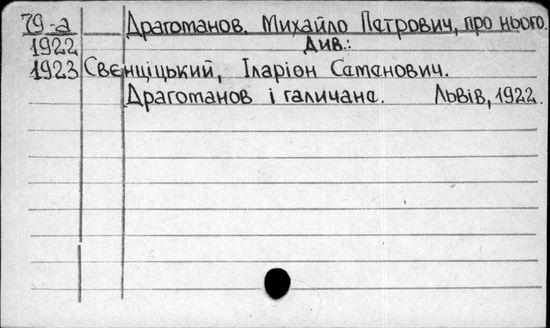 79-а Драгоманов. Михайло Петрович, про нього.
1922 Див.:
1923 Свєнціцький, Іларіон Семенович.
Драгоманов і галичане. Львів, 1922.